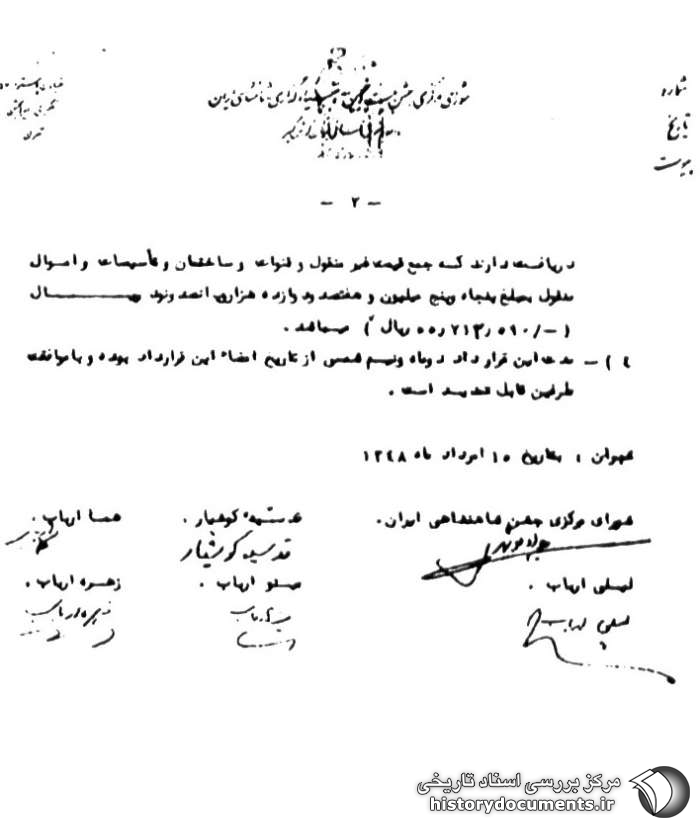 شماره
تاریخ
پیوست
شورای مرکزی جشن بنیانگذاری شاهنشاهی ایران
تهران
- ۲ -
دریافت دارند که جمع قیمت غیر منقول و قنوات و ساختمان و تأسیسات و اموال
منقول بمبلغ پنجاه و پنج میلیون و هفتصد و دوازده هزار و پانصد و نود ریال
ریال) میباشد.
۴) - مدت این قرارداد دو ماه و نیم شمسی از تاریخ امضاء این قرارداد بوده و با موافقت
طرفین قابل تمدید است.
تهران، بتاریخ ۱۵ امرداد ماه ۱۳۴۸
شورای مرکزی جشن شاهنشاهی ایران. قدسیه کوشیار. هما ارباب.
قدسیه کوشیار
لیلی ارباب. مینو ارباب. زهره ارباب.
لیلی ارباب
مرکز بررسی اسناد تاریخی
historydocuments.ir